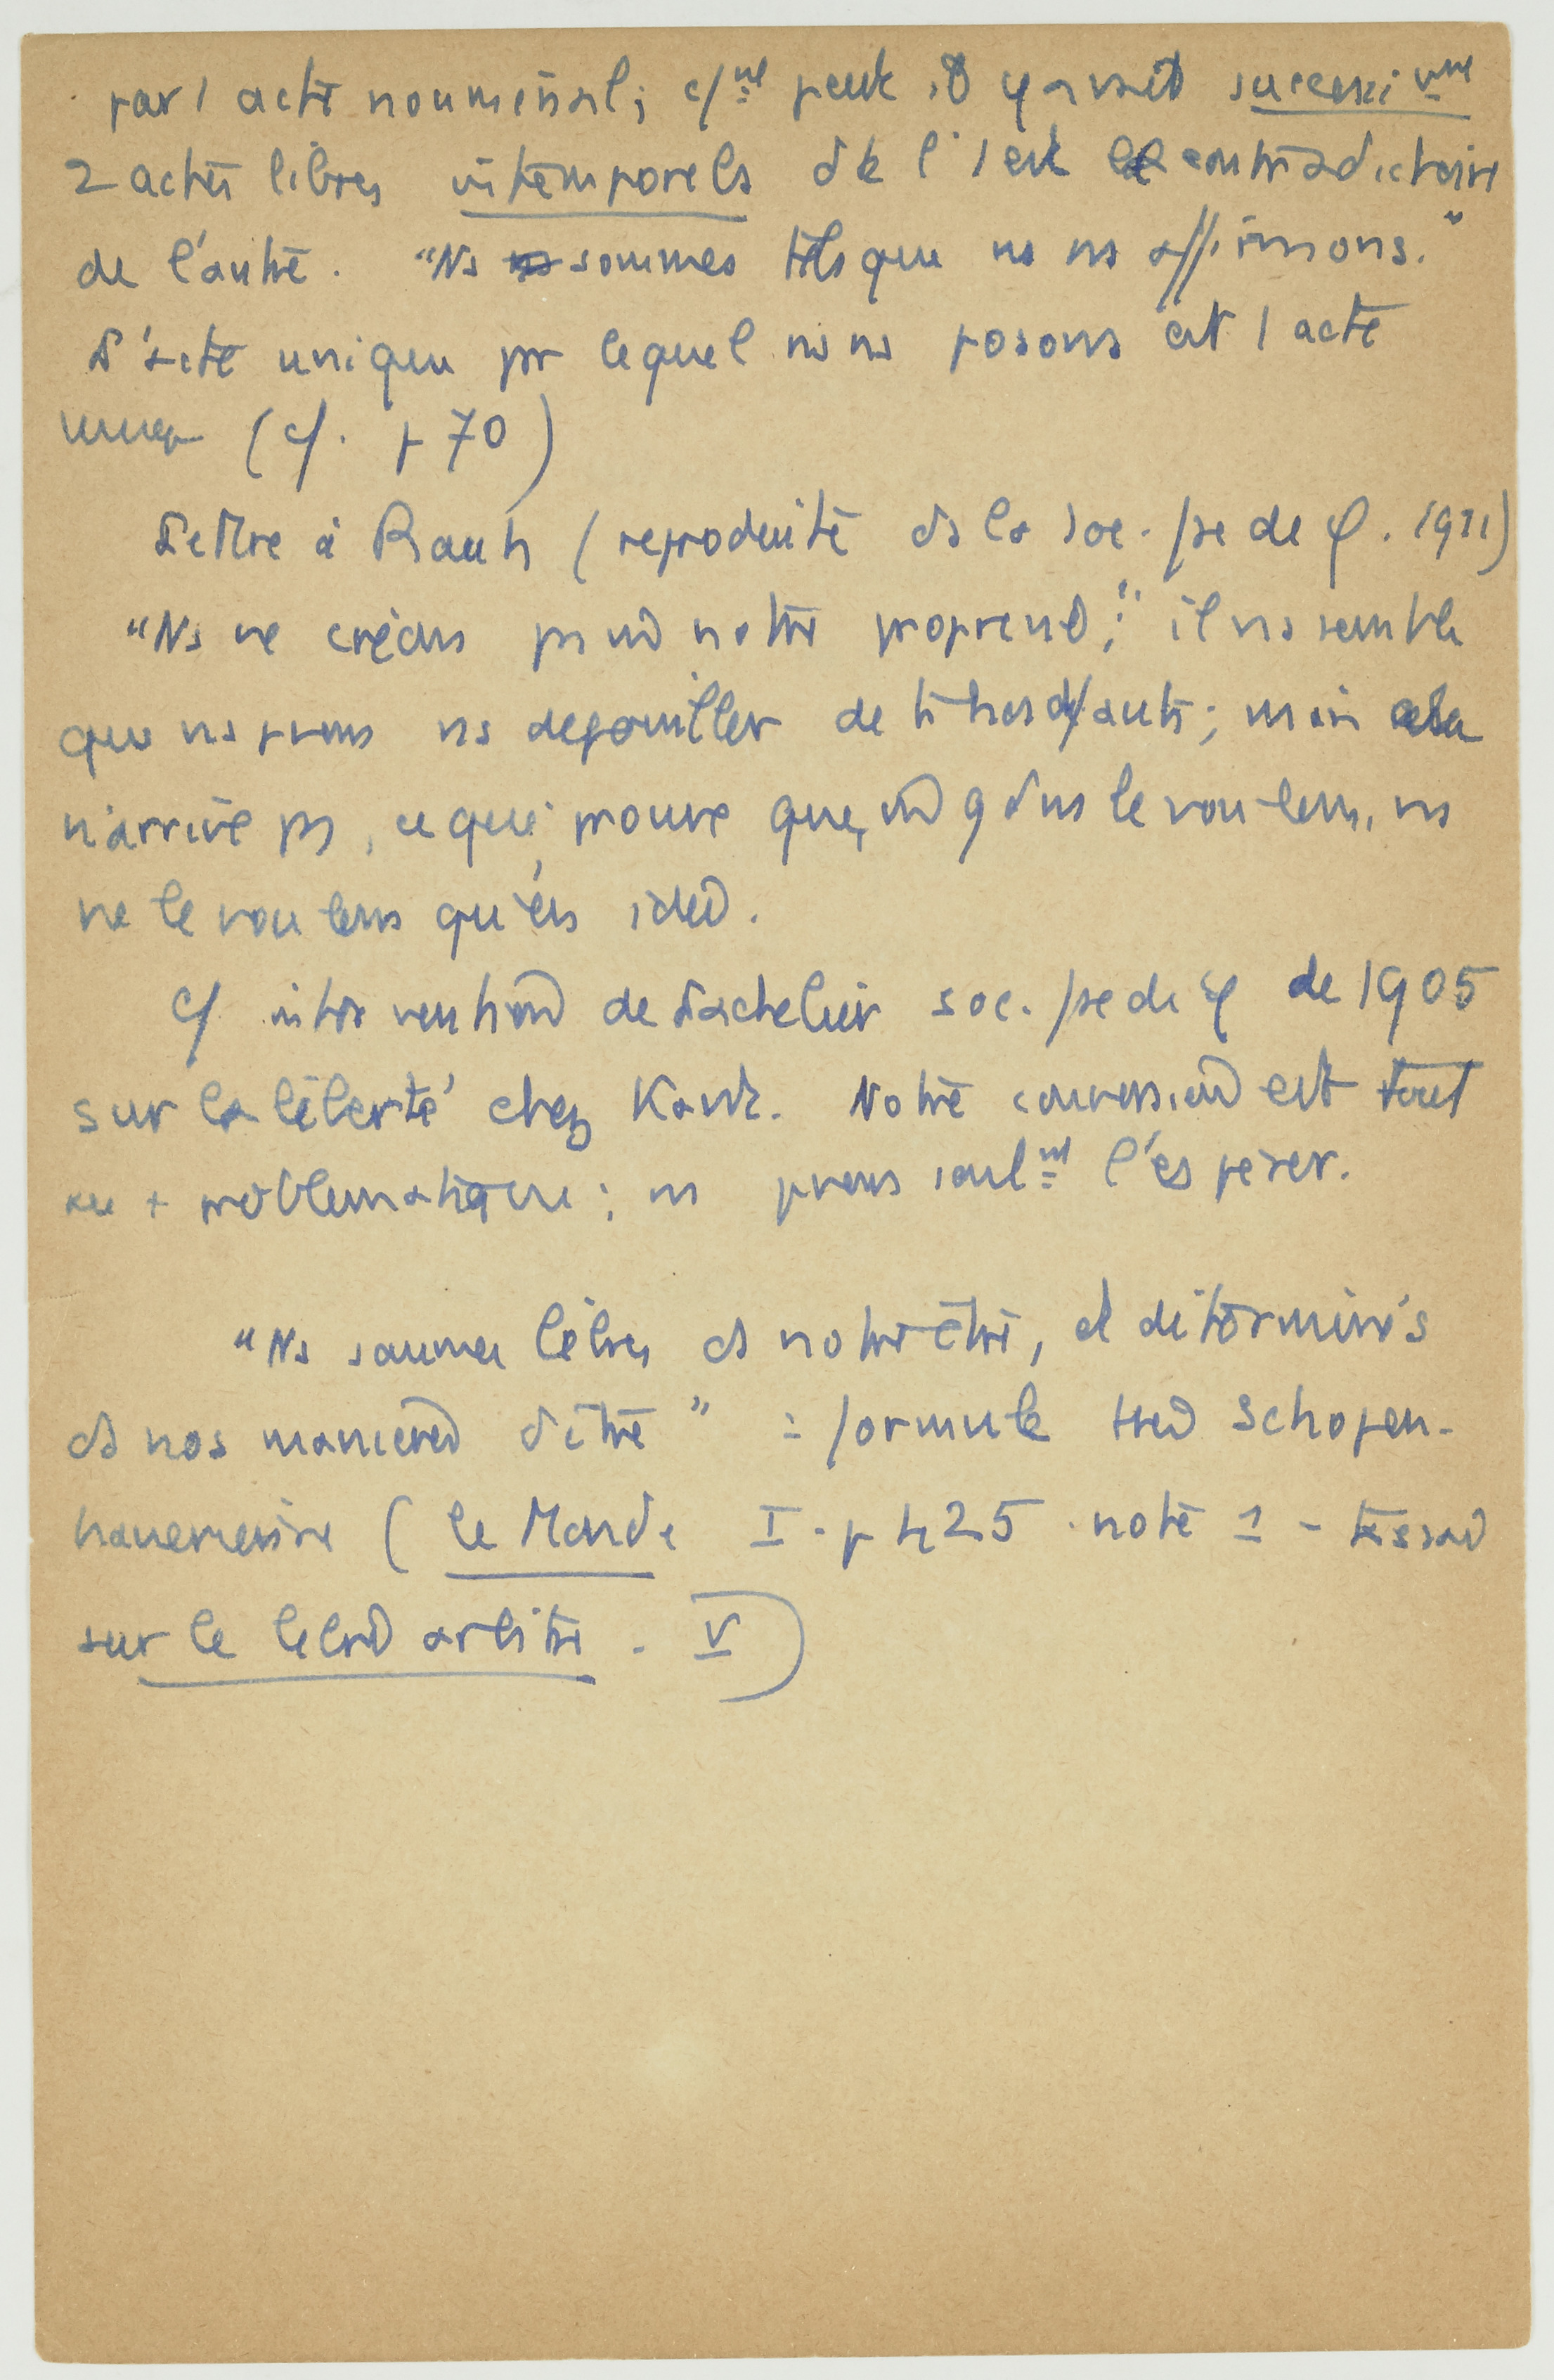 par 1 acte nouménal ; c/mt peut il y avoir successivmt
2 actes libres intemporels dt l'1 est le contradictoire
de l'autre. "Ns sommes tels que ns ns affirmons."
L'acte unique pr lequel ns ns posons est 1 acte
(cf. p 70)
Lettre à Rauh (reproduite ds la soc. fse de φ. 1921)
"Ns ne créons ps notre propre" ; il ns semble
que ns pvons ns dépouiller de ts nos défauts ; mais cela
n'arrive ps, ce qui prouve que, qd ns le voulons, ns
ne le voulons qu'en idée.
Cf intervention de Lachelier soc. fse de φ de 1905
sur la liberté chez Kant. Notre conversion est tout
au + problématique ; ns pvons seulmt l'espérer.
"Ns sommes libres ds notre être, et déterminés
ds nos manières d'être" : formule très schopen-
hauerienne (le Monde I. p 425 note 1 - Essai
sur le libre arbitre. V)